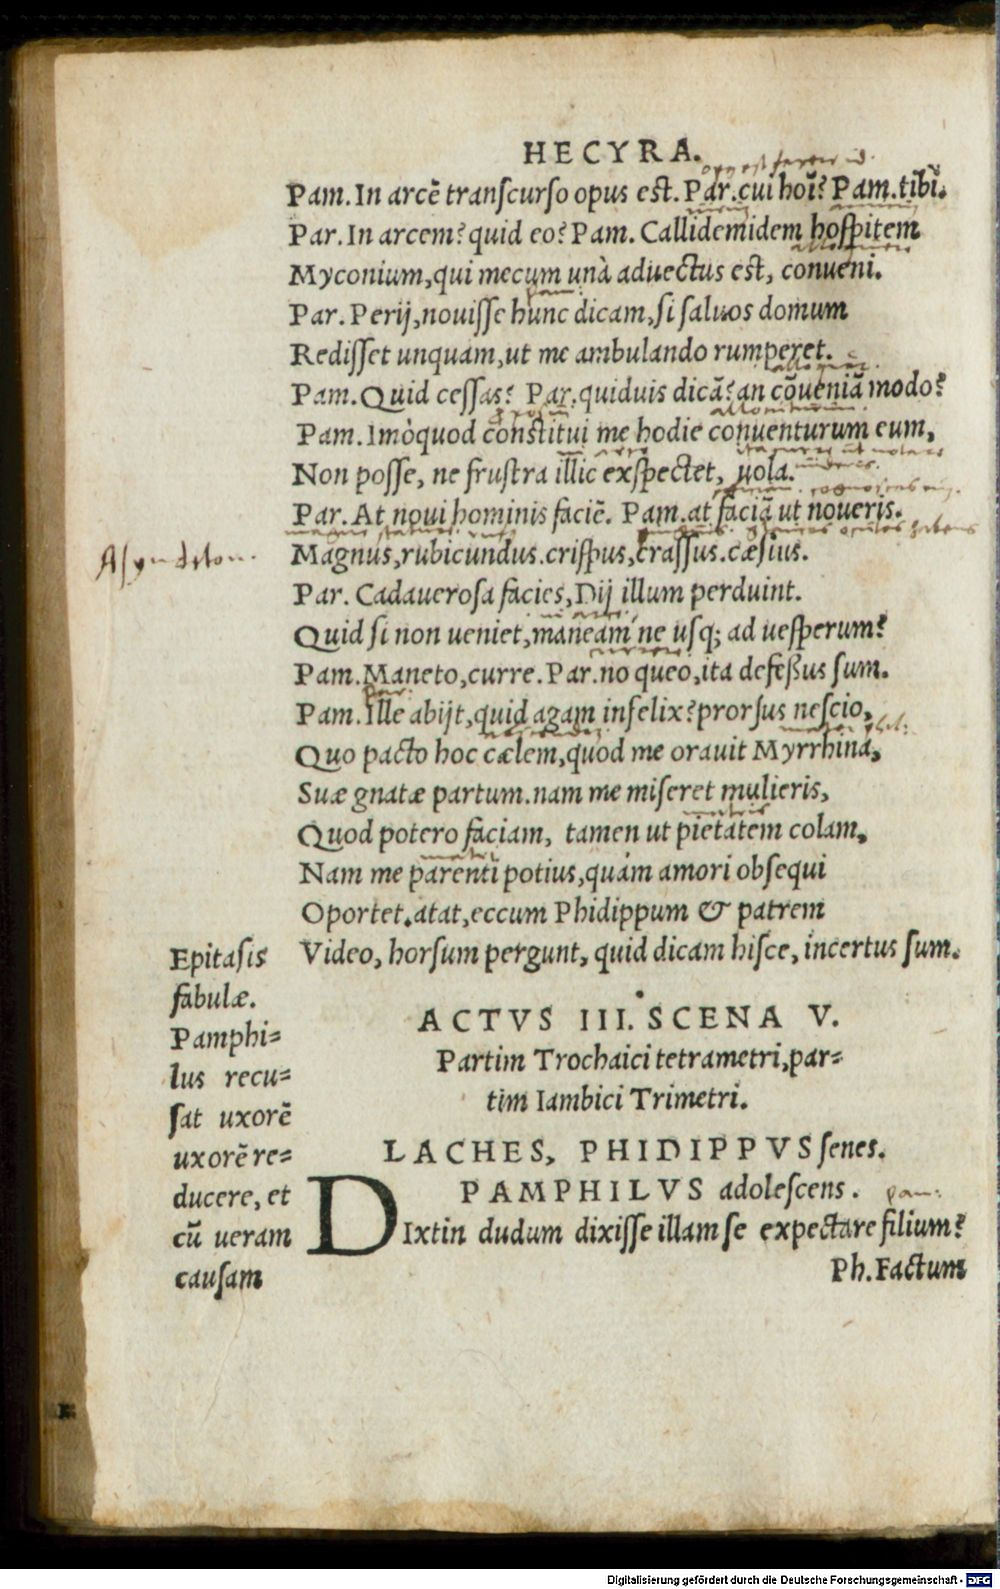 HECYRA.
Pam. In arcē transcurso opus est. Par. cui hoī? Pam. tibi.
Par. In arcem? quid eo? Pam. Callidemidem hospitem
Myconium, qui mecum unà aduectus est, conueni.
Par. Perij, nouisse hunc dicam, si saluos domum
Redisset unquam, ut me ambulando rumperet.
Pam. Quid cessas? Par. quiduis dicā? an cōueniā modo?
Pam. Imò quod constitui me hodie conuenturum eum,
Non posse, ne frustra illic exspectet, uola.
Par. At noui hominis faciē. Pam. at faciā ut noueris.
Asyndeton.
Magnus, rubicundus. crispus, crassus. cæsius.
Par. Cadauerosa facies, Dij illum perduint.
Quid si non ueniet, maneam´ne usq; ad uesperum?
Pam. Maneto, curre. Par. no queo, ita defeßus sum.
par.
Pam. Ille abijt, quid agam infelix? prorsus nescio,
Quo pacto hoc cælem, quod me orauit Myrrhina,
Suæ gnatæ partum. nam me miseret mulieris,
Quod potero faciam, tamen ut pietatem colam,
Nam me parenti potius, quàm amori obsequi
Oportet. atat, eccum Phidippum & patrem
Video, horsum pergunt, quid dicam hisce, incertus sum.
Epitasis
fabulæ.
Pamphi=
lus recu=
sat uxorē
uxorē re=
ducere, et
cū ueram
causam
ACTVS III. SCENA V.
Partim Trochaici tetrametri, par=
tim Iambici Trimetri.
LACHES, PHIDIPPVS senes.
PAMPHILVS adolescens.
pam:
DIxtin dudum dixisse illam se expectare filium?
Ph. Factum
Digitalisierung gefördert durch die Deutsche Forschungsgemeinschaft - DFG